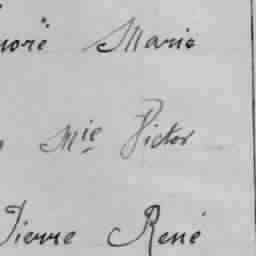 Marie
Mie Victor
Pierre René